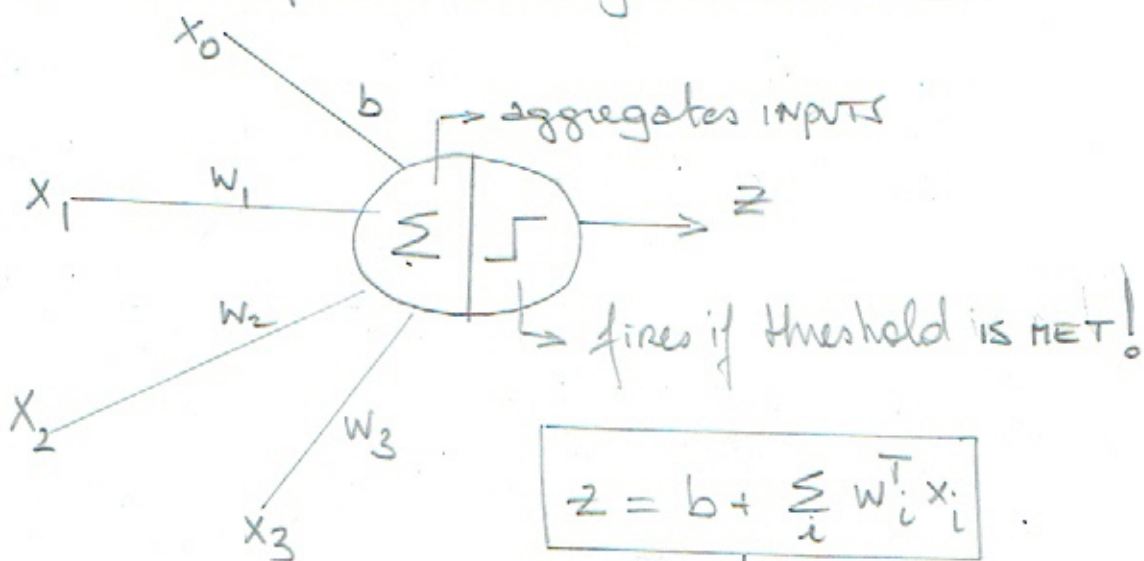 x₀
b
→ aggregates INPUTS
x₁
w₁
Σ
z
w₂
→ fires if threshold IS MET!
x₂
w₃
z = b + Σᵢ wᵢᵀ xᵢ
x₃